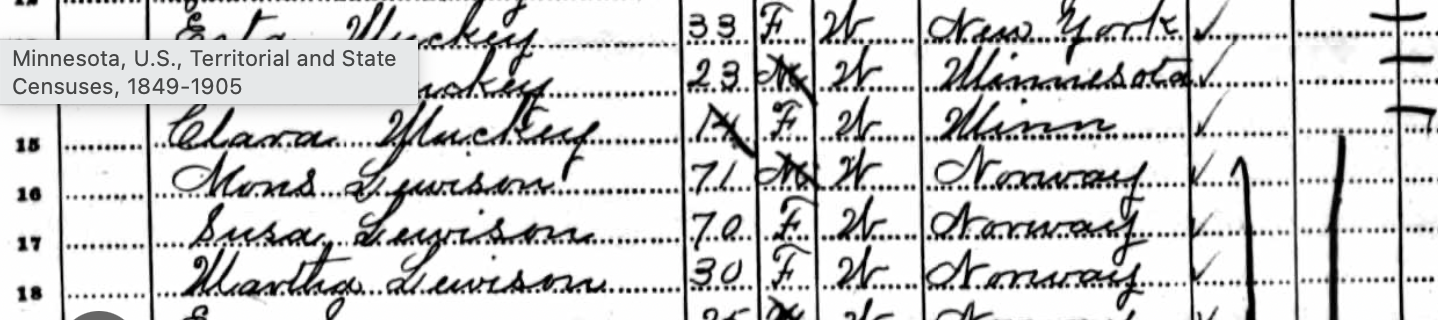 Minnesota, U.S., Territorial and State
Censuses, 1849-1905
Muckey 33 F W New York
uckey 23 M W Minnesota
15 Clara Muckey 14 F W Minn
16 Mons Lewison 71 M W Norway
17 Susa Lewison 70 F W Norway
18 Martha Lewison 30 F W Norway